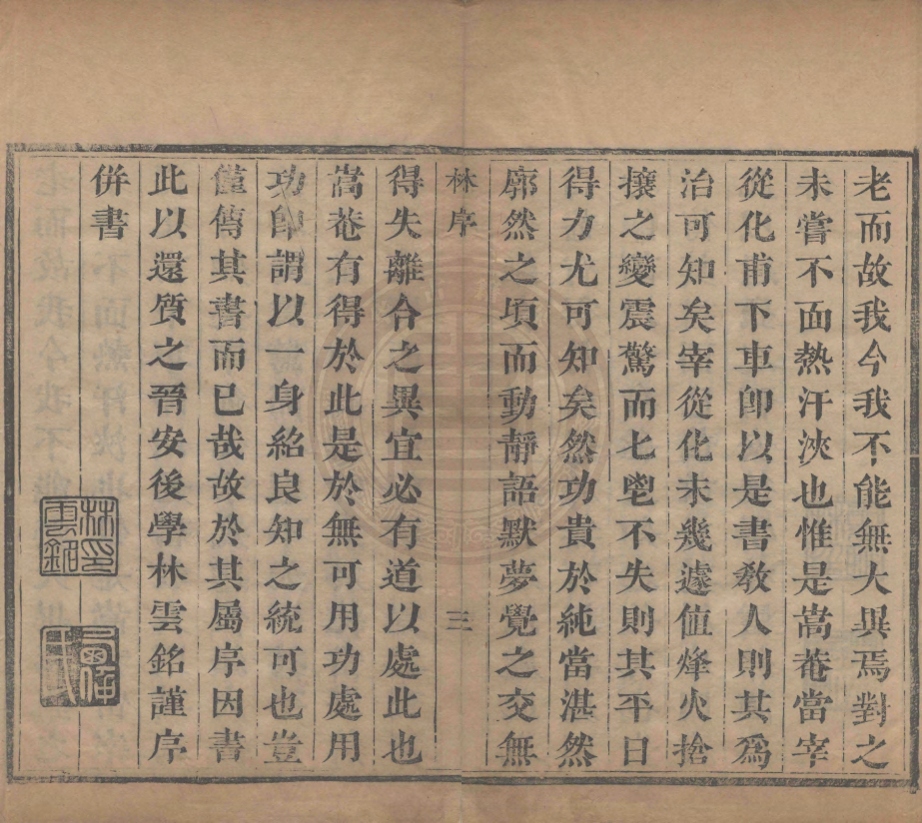 老而故我今我不能無大異焉對之
未嘗不面熱汗浹也惟是嵩菴當宰
從化甫下車卽以是書教人則其爲
治可知矣宰從化未幾遽值烽火搶
攘之變震驚而匕鬯不失則其平日
得力尤可知矣然功貴於純當湛然
廓然之頃而動靜語默夢覺之交無
林序 三
得失離合之異宜必有道以處此也
嵩菴有得於此是於無可用功處用
功卽謂以一身紹良知之統可也豈
僅傳其書而已哉故於其屬序因書
此以還質之晉安後學林雲銘謹序
併書
林印雲銘